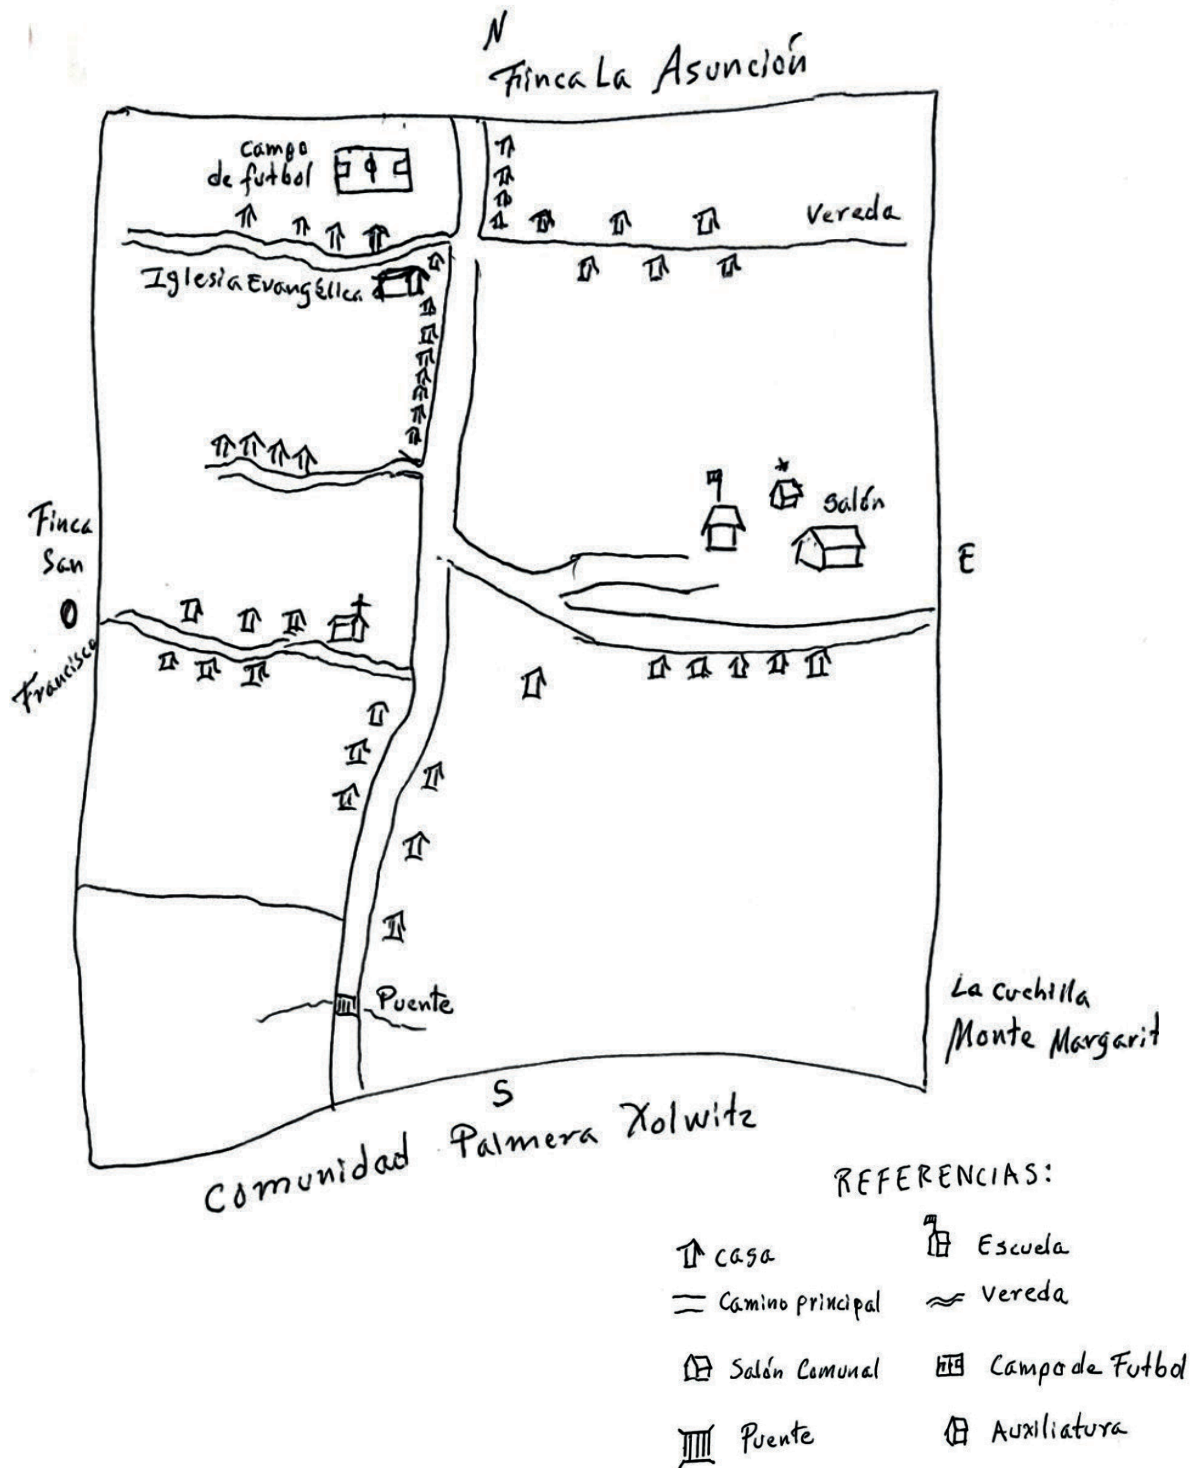 N
Finca La Asunción
campo
de futbol
Vereda
Iglesia Evangélica
Salón
Finca
San
O
Francisco
E
Puente
La Cuchilla
Monte Margarit
S
Comunidad Palmera Xolwitz
REFERENCIAS:
casa
Escuela
Camino principal
Vereda
Salón Comunal
Campo de Futbol
Puente
Auxiliatura